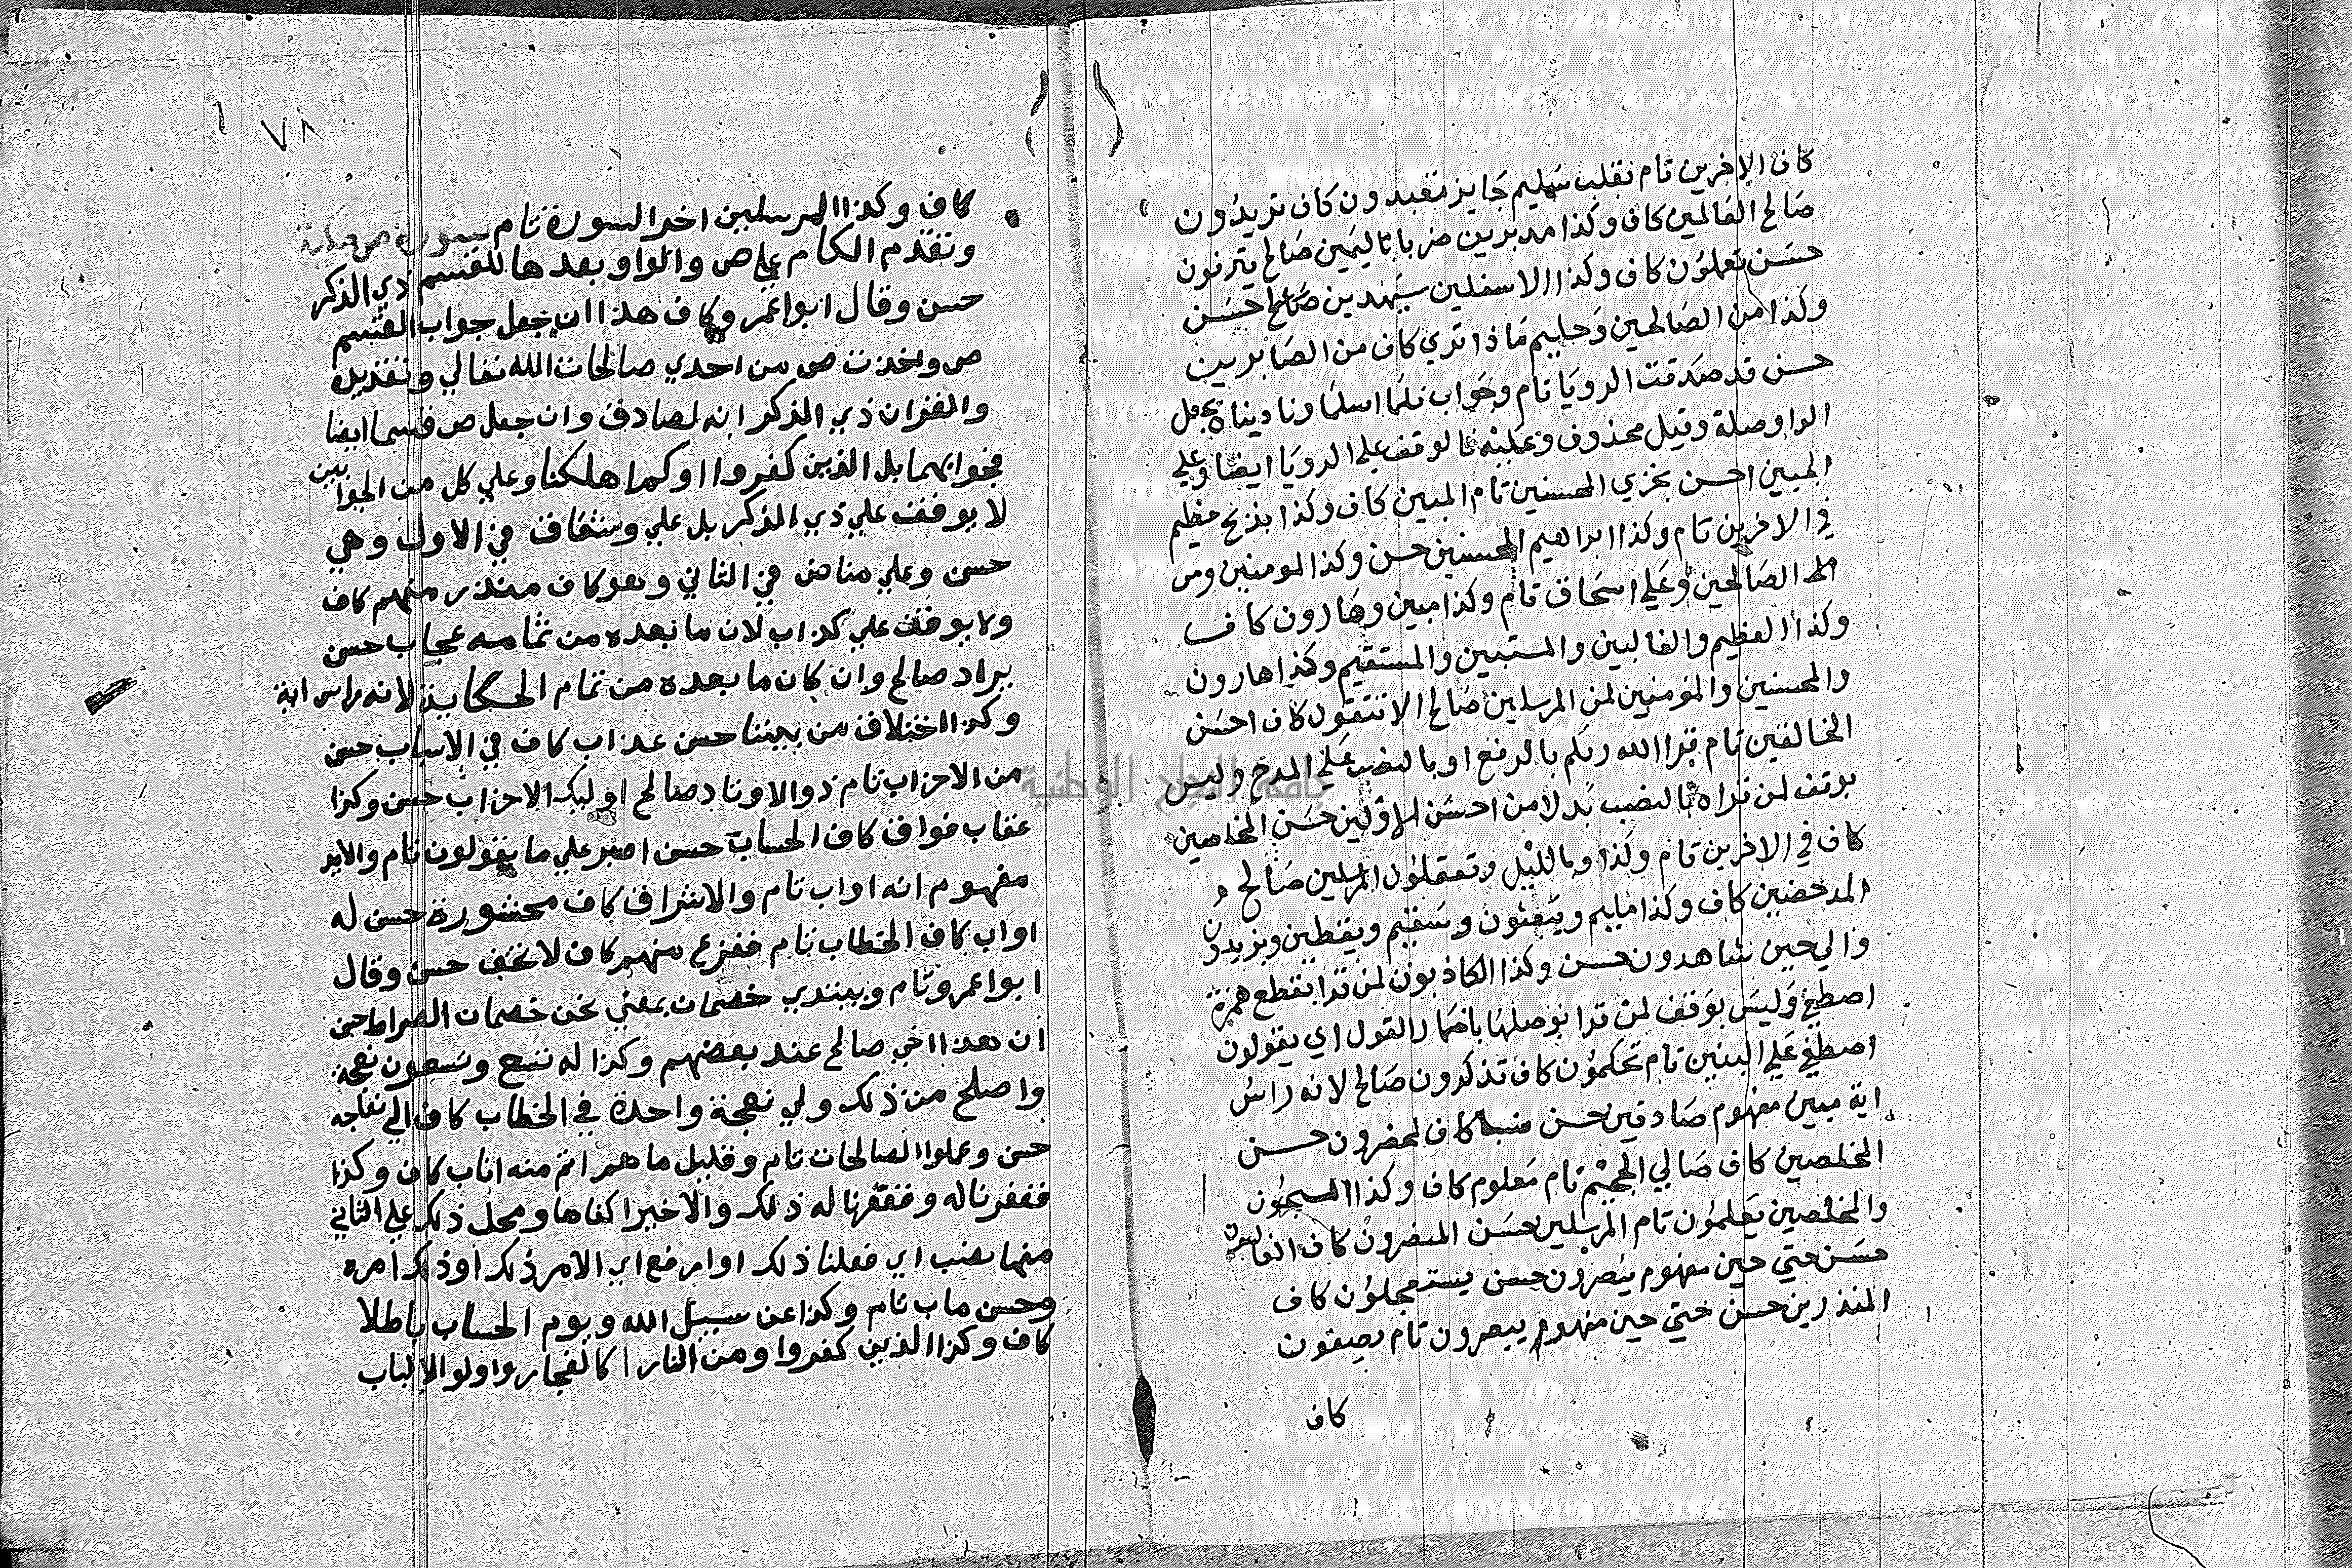 كاف الاخرين تام بقلب سليم جايز تعبدون كاف تريدون
صالح العالمين كاف وكذا مدبرين ضربا باليمين صالح يزفون
حسن تعملون كاف وكذا الاسفلين سيهدين صالح حسن
وكذا من الصالحين وحليم ماذا تري كاف من الصابرين
حسن قد صدقت الرويا تام وجواب فلما اسلما وناديناه بجعل
الواو صلة وقيل محذوف وعليه فالوقف علي الرويا ايضا وعلي
الجبين احسن نجزي المحسنين تام المبين كاف وكذا بذبح عظيم
في الاخرين تام وكذا ابراهيم المحسنين حسن وكذا المومنين ومن
الصالحين وعلي اسحاق تام وكذا مبين وهارون كاف
وكذا العظيم والغالبين والمستبين والمستقيم وكذا هارون
والمحسنين والمؤمنين لمن المرسلين صالح الا تتقون كاف احسن
الخالقين تام قرا الله ربكم بالرفع او بالنصب علي المدح وليس
بوقف لمن قراه بالنصب بدلا من احسن الاولين حسن المخلصين
كاف في الاخرين تام وكذا وبالليل وتعقلون المرسلين صالح
المدحضين كاف وكذا مليم ويبعثون وسقيم ويقطين ويزيدون
والي حين شاهدون حسن وكذا الكاذبون لمن قرا بقطع همزة
اصطفي وليس بوقف لمن قرا بوصلها باضمار القول اي يقولون
اصطفي علي البنين تام تحكمون كاف تذكرون صالح لانه راس
اية مبين مفهوم صادقين حسن نسبا كاف لمحضرون حسن
المخلصين كاف صالي الجحيم تام معلوم كاف وكذا المسبحون
والمخلصين يعلمون تام المرسلين حسن المنصرون كاف الغالبون
حسن حتي حين مفهوم يبصرون حسن يستعجلون كاف
المنذرين حسن حتي حين مفهوم يبصرون تام يصفون
كاف
٧٨
كاف وكذا المرسلين اخر السورة تام سورة ص مكية
وتقدم الكلام علي ص والواو بعدها للقسم ذي الذكر
حسن وقال ابوا عمرو كاف هذا ان جعل جواب القسم
ص واخذت ص من احدي صالحات الله تعالي وتقديره
والقران ذي الذكر انه لصادق وان جعل ص قسما ايضا
فجوابهما بل الذين كفروا او كم اهلكنا وعلي كل من الجوابين
لا يوقف علي ذي الذكر بل علي وشقاق في الاول وهي
حسن وعلي مناص في الثاني وهو كاف منذر منهم كاف
ولا يوقف علي كذاب لان ما بعده من تمامه عجاب حسن
يراد صالح وان كان ما بعده من تمام الحكاية لانه راس اية
وكذا اختلاق من بيننا حسن عذاب كاف في الاسباب حسن
من الاحزاب تام ذو الاوتاد صالح اوليك الاحزاب حسن وكذا
عقاب فواق كاف الحساب حسن اصبر علي ما يقولون تام والايد
مفهوم انه اواب تام والاشراق كاف محشورة حسن له
اواب كاف الخطاب تام ففزع منهم كاف لا تخف حسن وقال
ابوا عمرو تام ويبتدي خصمان بمعني نحن خصمان الصراط حسن
ان هذا اخي صالح عند بعضهم وكذا له تسع وتسعون نعجة
واصلح من ذلك ولي نعجة واحدة في الخطاب كاف الي نعاجه
حسن وعملوا الصالحات تام وقليل ما هم اتم منه اناب كاف وكذا
فغفرنا له وفغفرنا له ذلك والاخير اكفاها ومحل ذلك علي الثاني
منها نصب اي فعلنا ذلك او رفع اي الامر ذلك او ذلك امره
وحسن ماب تام وكذا عن سبيل الله ويوم الحساب باطلا
كاف وكذا الذين كفروا ومن النار كالفجار واولو الالباب
جامعة النجاح الوطنية